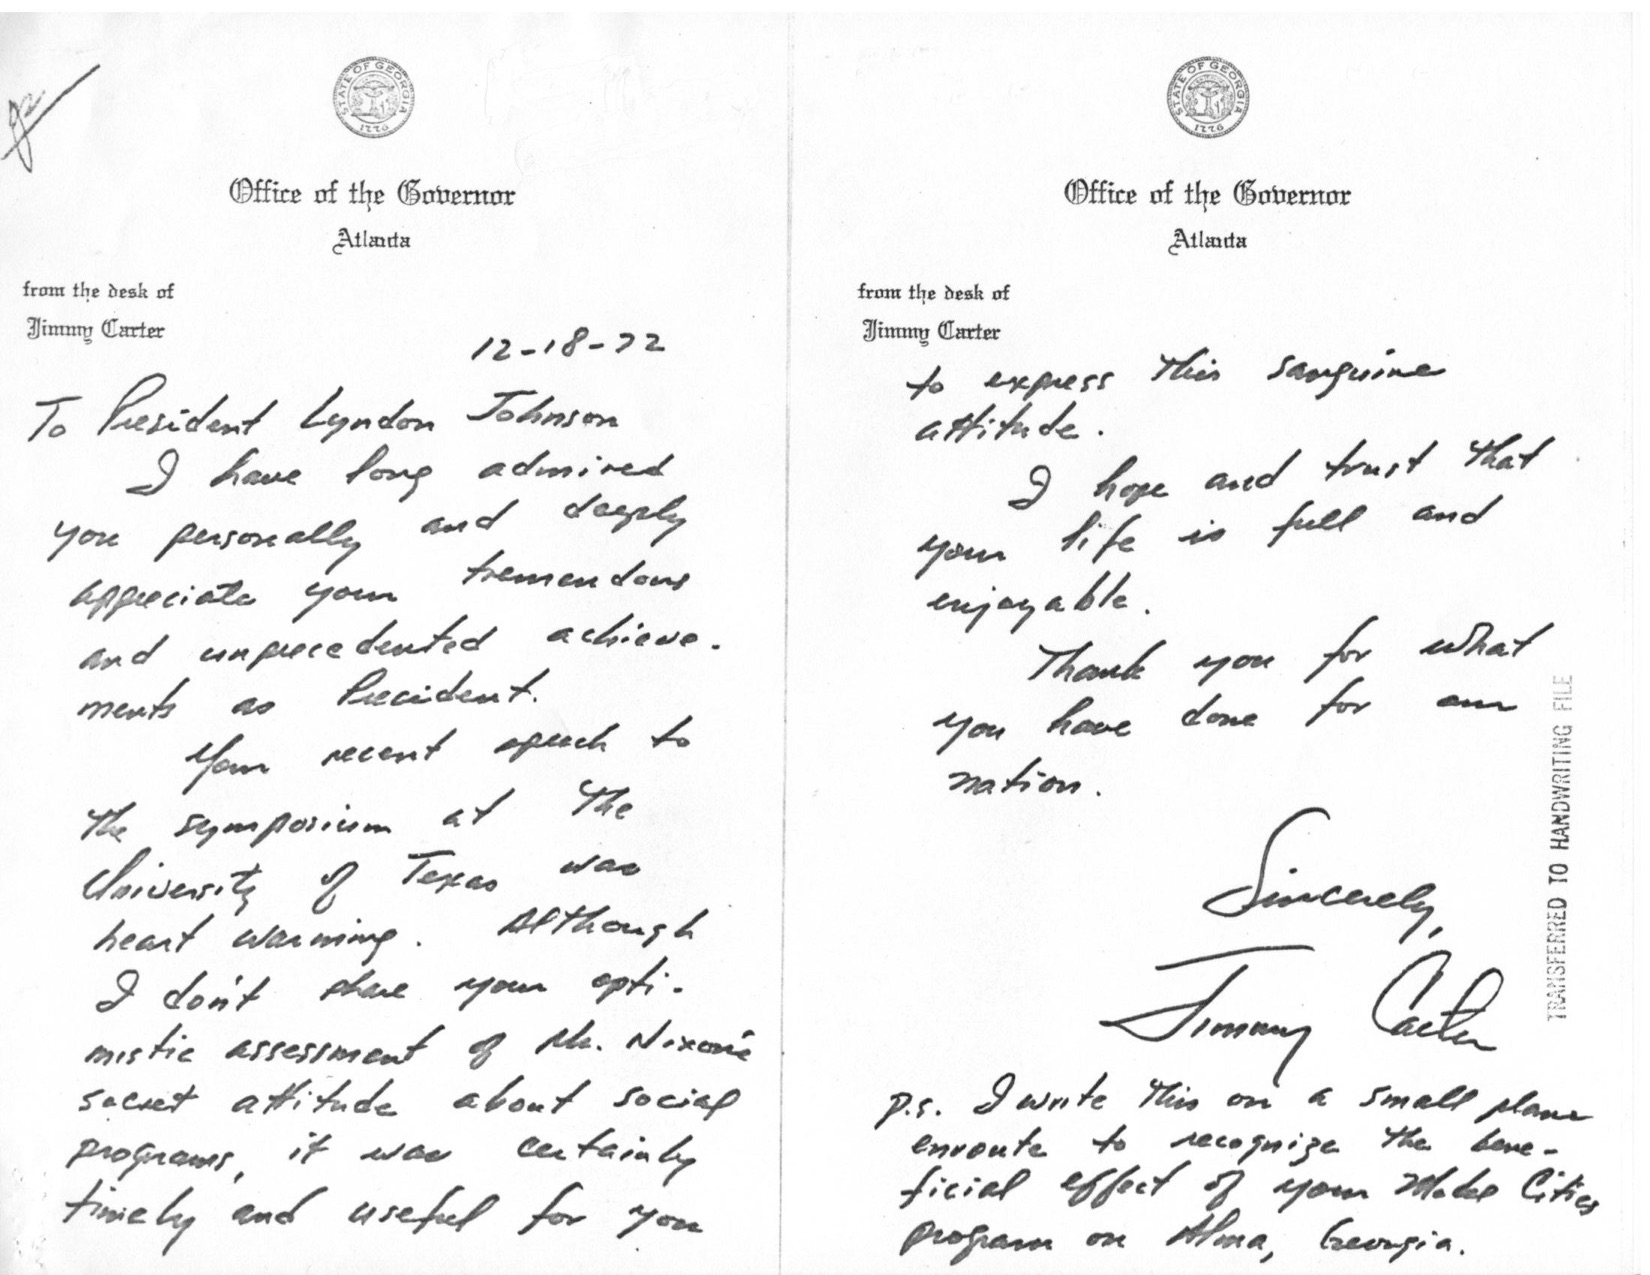 STATE OF GEORGIA
1776
Office of the Governor
Atlanta
from the desk of
Jimmy Carter
12-18-72
To President Lyndon Johnson
I have long admired
you personally and deeply
appreciate your tremendous
and unprecedented achieve-
ments as President.
Your recent speech to
the symposium at the
University of Texas was
heart warming. Although
I don't share your opti-
mistic assessment of Mr. Nixon's
secret attitude about social
programs, it was certainly
timely and useful for you
STATE OF GEORGIA
1776
Office of the Governor
Atlanta
from the desk of
Jimmy Carter
to express this sanguine
attitude.
I hope and trust that
your life is full and
enjoyable.
Thank you for what
you have done for our
nation.
Sincerely,
Jimmy Carter
p.s. I write this on a small plane
enroute to recognize the bene-
ficial effect of your Model Cities
program on Alma, Georgia.
TRANSFERRED TO HANDWRITING FILE